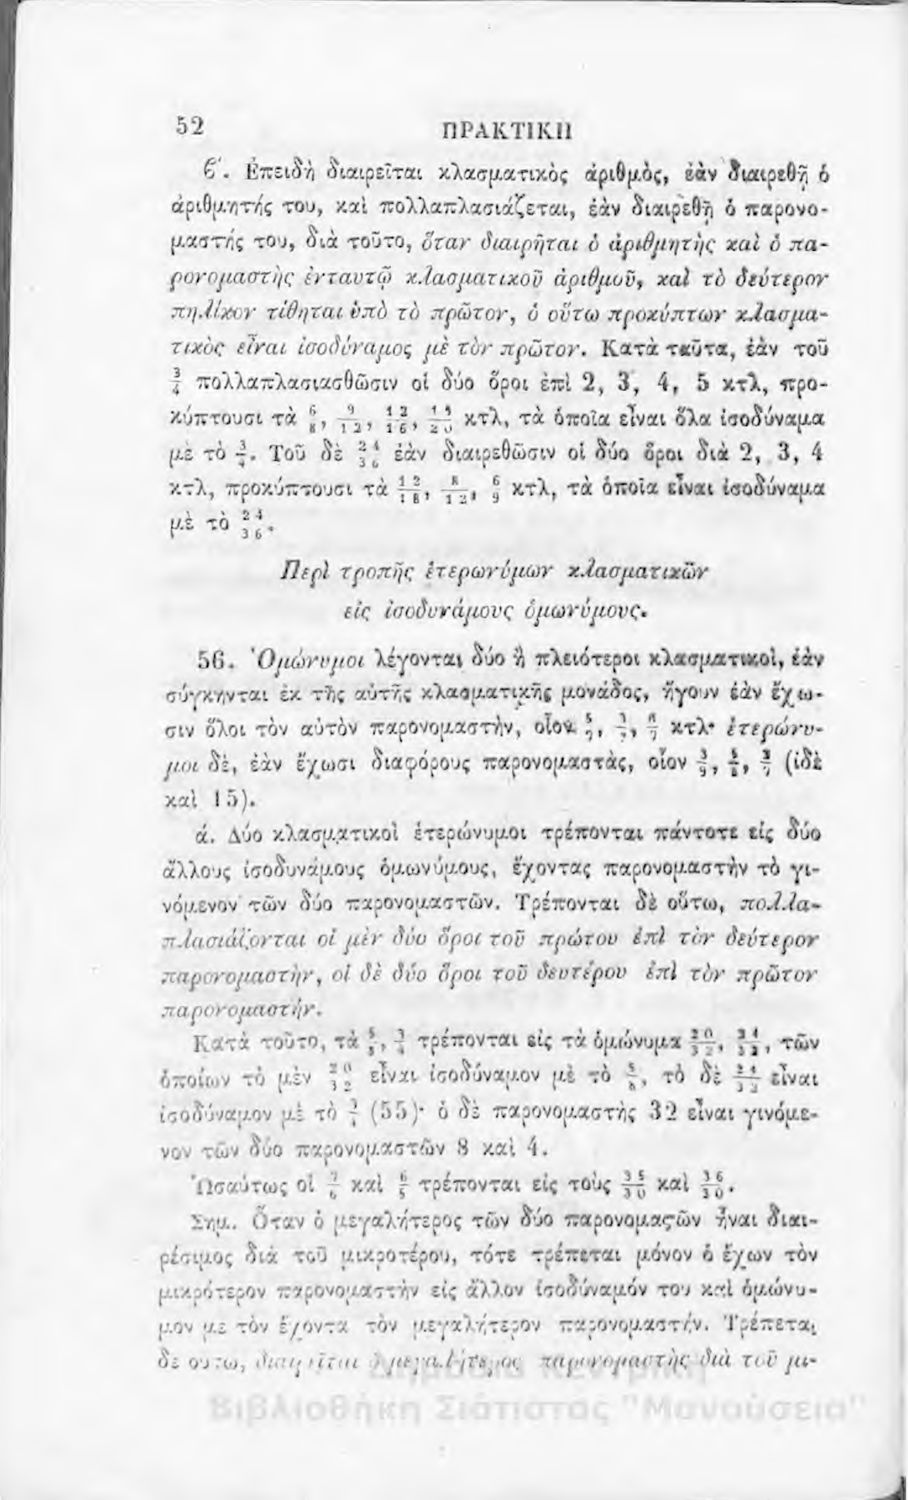 52 ΠΡΑΚΤΙΚΗ
β΄. Ἐπειδὴ διαιρεῖται κλασματικὸς ἀριθμὸς, ἐὰν διαιρεθῇ ὁ
ἀριθμητής του, καὶ πολλαπλασιάζεται, ἐὰν διαιρεθῇ ὁ παρονο-
μαστής του, διὰ τοῦτο, ὅταν διαιρῆται ὁ ἀριθμητὴς καὶ ὁ πα-
ρονομαστὴς ἐνταυτῷ κλασματικοῦ ἀριθμοῦ, καὶ τὸ δεύτερον
πηλίκον τίθηται ὑπὸ τὸ πρῶτον, ὁ οὕτω προκύπτων κλασμα-
τικὸς εἶναι ἰσοδύναμος μὲ τὸν πρῶτον. Κατὰ ταῦτα, ἐὰν τοῦ
3/4 πολλαπλασιασθῶσιν οἱ δύο ὅροι ἐπὶ 2, 3, 4, 5 κτλ, προ-
κύπτουσι τὰ 6/8, 9/12, 12/16, 15/20 κτλ, τὰ ὁποῖα εἶναι ὅλα ἰσοδύναμα
μὲ τὸ 3/4. Τοῦ δὲ 24/36 ἐὰν διαιρεθῶσιν οἱ δύο ὅροι διὰ 2, 3, 4
κτλ, προκύπτουσι τὰ 12/18, 8/12, 6/9 κτλ, τὰ ὁποῖα εἶναι ἰσοδύναμα
μὲ τὸ 24/36.
Περὶ τροπῆς ἑτερωνύμων κλασματικῶν
εἰς ἰσοδυνάμους ὁμωνύμους.
56. Ὁμώνυμοι λέγονται δύο ἢ πλειότεροι κλασματικοὶ, ἐὰν
σύγκηνται ἐκ τῆς αὐτῆς κλασματικῆς μονάδος, ἤγουν ἐὰν ἔχω-
σιν ὅλοι τὸν αὐτὸν παρονομαστὴν, οἷον κτλ· ἑτερώνυ-
μοι δὲ, ἐὰν ἔχωσι διαφόρους παρονομαστὰς, οἷον (ἰδὲ
καὶ 15).
ά. Δύο κλασματικοὶ ἑτερώνυμοι τρέπονται πάντοτε εἰς δύο
ἄλλους ἰσοδυνάμους ὁμωνύμους, ἔχοντας παρονομαστὴν τὸ γι-
νόμενον τῶν δύο παρονομαστῶν. Τρέπονται δὲ οὕτω, πολλα-
πλασιάζονται οἱ μὲν δύο ὅροι τοῦ πρώτου ἐπὶ τὸν δεύτερον
παρονομαστὴν, οἱ δὲ δύο ὅροι τοῦ δευτέρου ἐπὶ τὸν πρῶτον
παρονομαστήν.
Κατὰ τοῦτο, τὰ 5/8, 3/4 τρέπονται εἰς τὰ ὁμώνυμα 20/32, 24/32, τῶν
ὁποίων τὸ μὲν 20/32 εἶναι ἰσοδύναμον μὲ τὸ 5/8, τὸ δὲ 24/32 εἶναι
ἰσοδύναμον μὲ τὸ 3/4 (55)· ὁ δὲ παρονομαστὴς 32 εἶναι γινόμε-
νον τῶν δύο παρονομαστῶν 8 καὶ 4.
Ὡσαύτως οἱ 7/6 καὶ 6/5 τρέπονται εἰς τοὺς 35/30 καὶ 36/30.
Σημ. Ὅταν ὁ μεγαλήτερος τῶν δύο παρονομαςῶν ἦναι διαι-
ρέσιμος διὰ τοῦ μικροτέρου, τότε τρέπεται μόνον ὁ ἔχων τὸν
μικρότερον παρονομαστὴν εἰς ἄλλον ἰσοδύναμόν του καὶ ὁμώνυ-
μον μὲ τὸν ἔχοντα τὸν μεγαλήτερον παρονομαστήν. Τρέπεται
δὲ οὕτω, διαιρεῖται ὁ μεγαλήτερος παρονομαστὴς διὰ τοῦ μι-
Δημόσια Κεντρική
Βιβλιοθήκη Σιάτιστας "Μανούσεια"